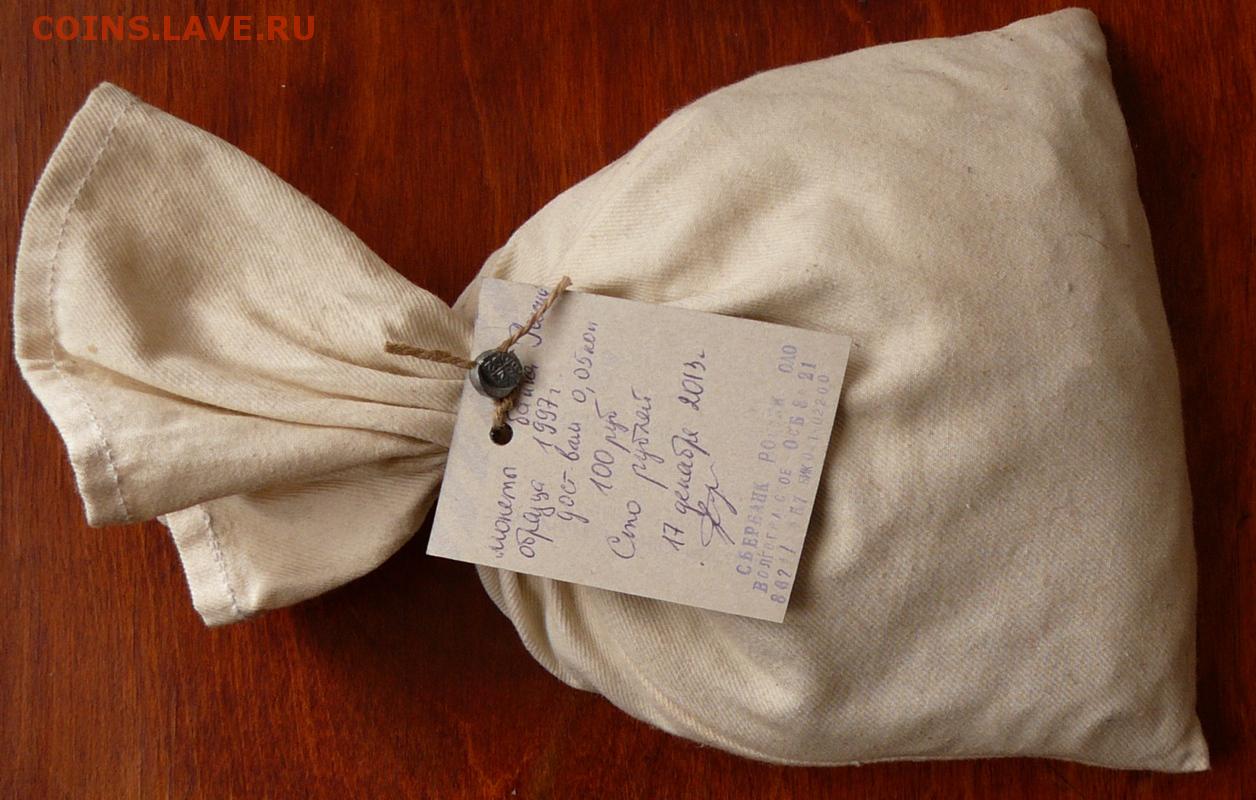 COINS.LAVE.RU
монеты банка России
образца 1997 г.
дост-вам 0,05 коп
100 руб
Сто рублей
17 декабря 2013 г.
СБЕРБАНК РОССИИ ОАО
ВОЛГОГРАДСКОЕ ОСБ 8621